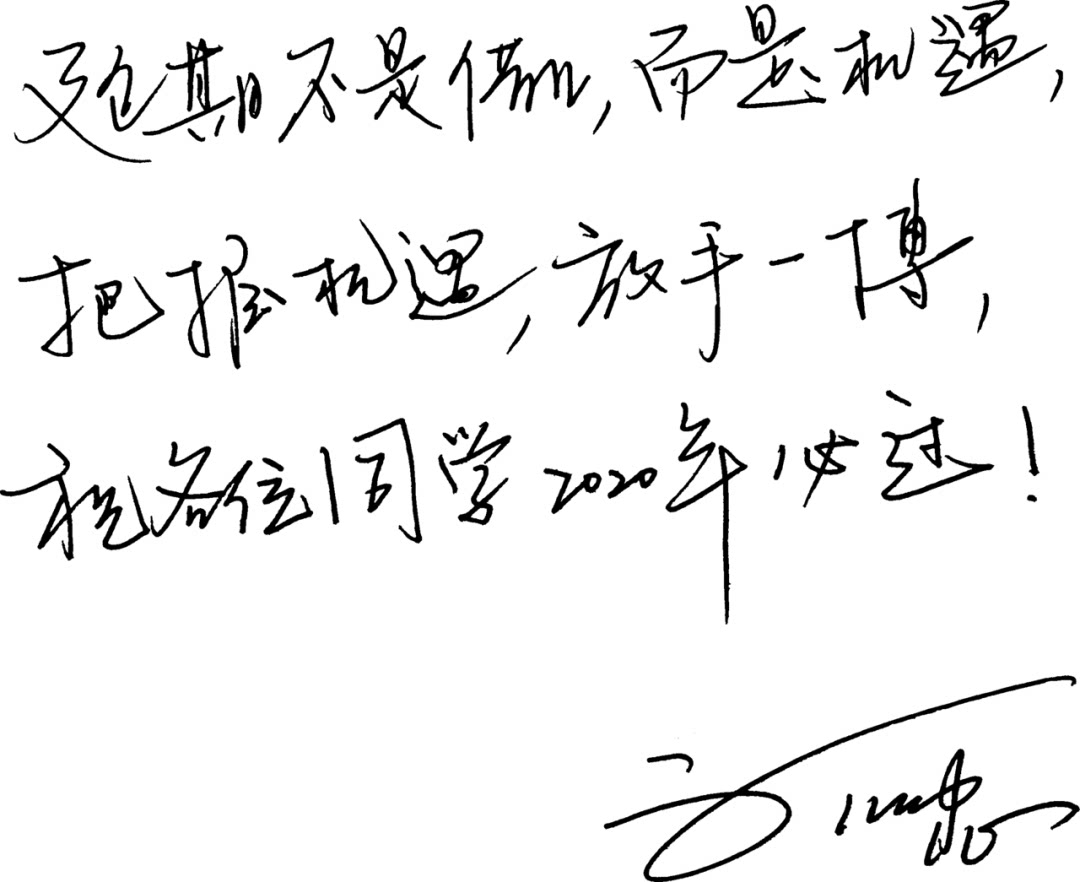 延期不是，而是机遇，
把握机遇，放手一搏，
祝各位同学2020年必过！